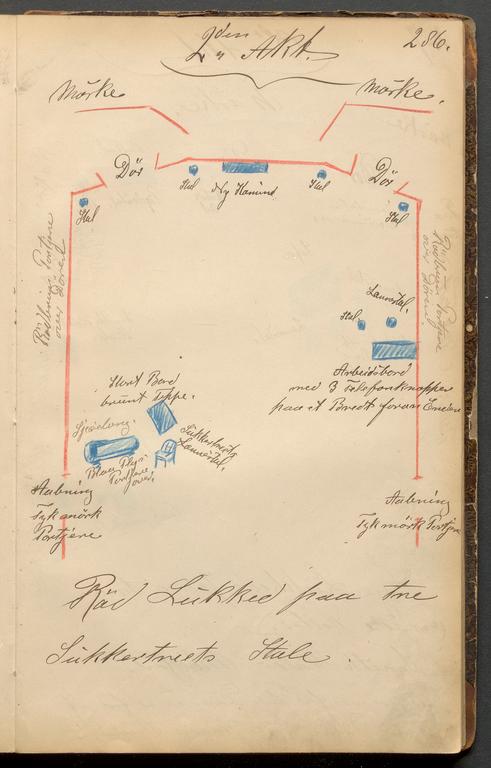 286.
2den Akt.
Mörke
Mörke.
Dör
Dör
Stol
Ny Kamin
Stol
Stol
Stol
Rödbrun Portjere
over Dören
Rödbrun Portjere
over Dören
Lænestol.
Stol
Arbeidsbord
med 3 Telefonknapper
paa et Bredt foran
Stort Bord
brunt Teppe.
Sjeselong.
Sukkertræets
Lænestol.
Blaa Plys
Portjere
over
Aabning
Tyk mörk
Portjere
Aabning
Tyk mörk Portjere
Röd Lukked paa tre
Sukkertreets Stole.